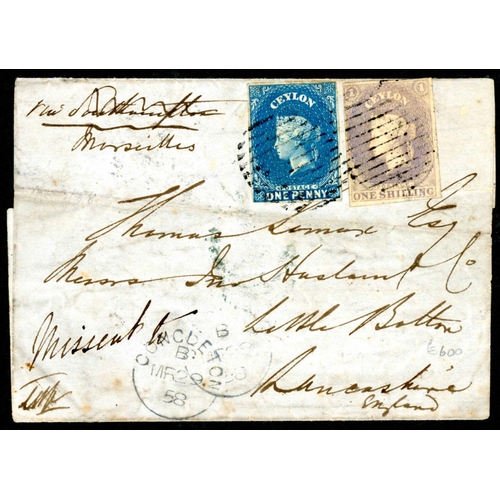 via Southampton
Marseilles
CEYLON
POSTAGE
ONE PENNY
1 CEYLON 1
ONE SHILLING
Thomas Lomax Esq
Messrs Jno Haslam & Co
Missent to
Little Bolton
Lancashire
England
B
MR 20
58
£600